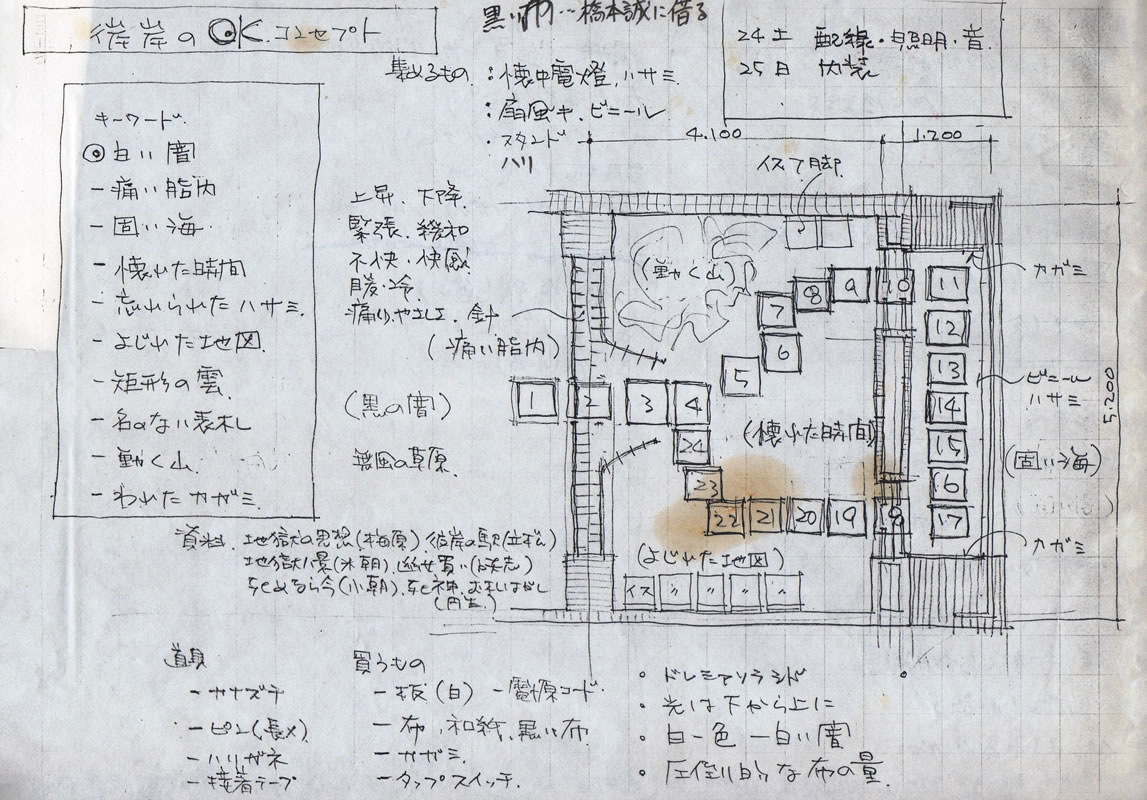 彼岸の OK. コンセプト
黒い布…橋本誠に借る
24 土 配線・照明・音.
25 日 内装
集めるもの : 懐中電燈, ハサミ
: 扇風キ. ビニール
・スタンド
ハリ
4.100
1.200
5.200
キーワード.
◎ 白い闇
― 痛い脂肉
― 固い海
― 懐れた時間
― 忘れられた ハサミ.
― よじれた地図.
― 矩形の雲.
― 名のない表札
― 動く山.
― われた カガミ.
上昇. 下降.
緊張. 緩和
不快・快感
暖・冷.
痛い やさしさ. 針
(痛い脂肉)
(黒の闇)
無風の草原.
イス 7脚
(動く山)
カガミ
ビニール
ハサミ
(固い海)
カガミ
(懐れた時間)
(よじれた地図)
1 2 3 4 5 6 7 8 9 10
11
12
13
14
15
16
17
18
19
20
21
22
23
24
イス 〃 〃 〃 〃
資料. 地獄の思想(梅原). 彼岸の駅(立松)
地獄八景(米朝).
死ぬなら今(小朝). 死神.
(円生)
道具
― カナズチ
― ピン(長メ)
― ハリガネ
― 接着テープ
買うもの
― 板(白) ― 電源コード.
― 布, 和紙, 黒い布.
― カガミ.
― タップ スイッチ.
・ドレミファソラシド
・光は下から上に
・白一色 ― 白い闇
・圧倒的な布の量.